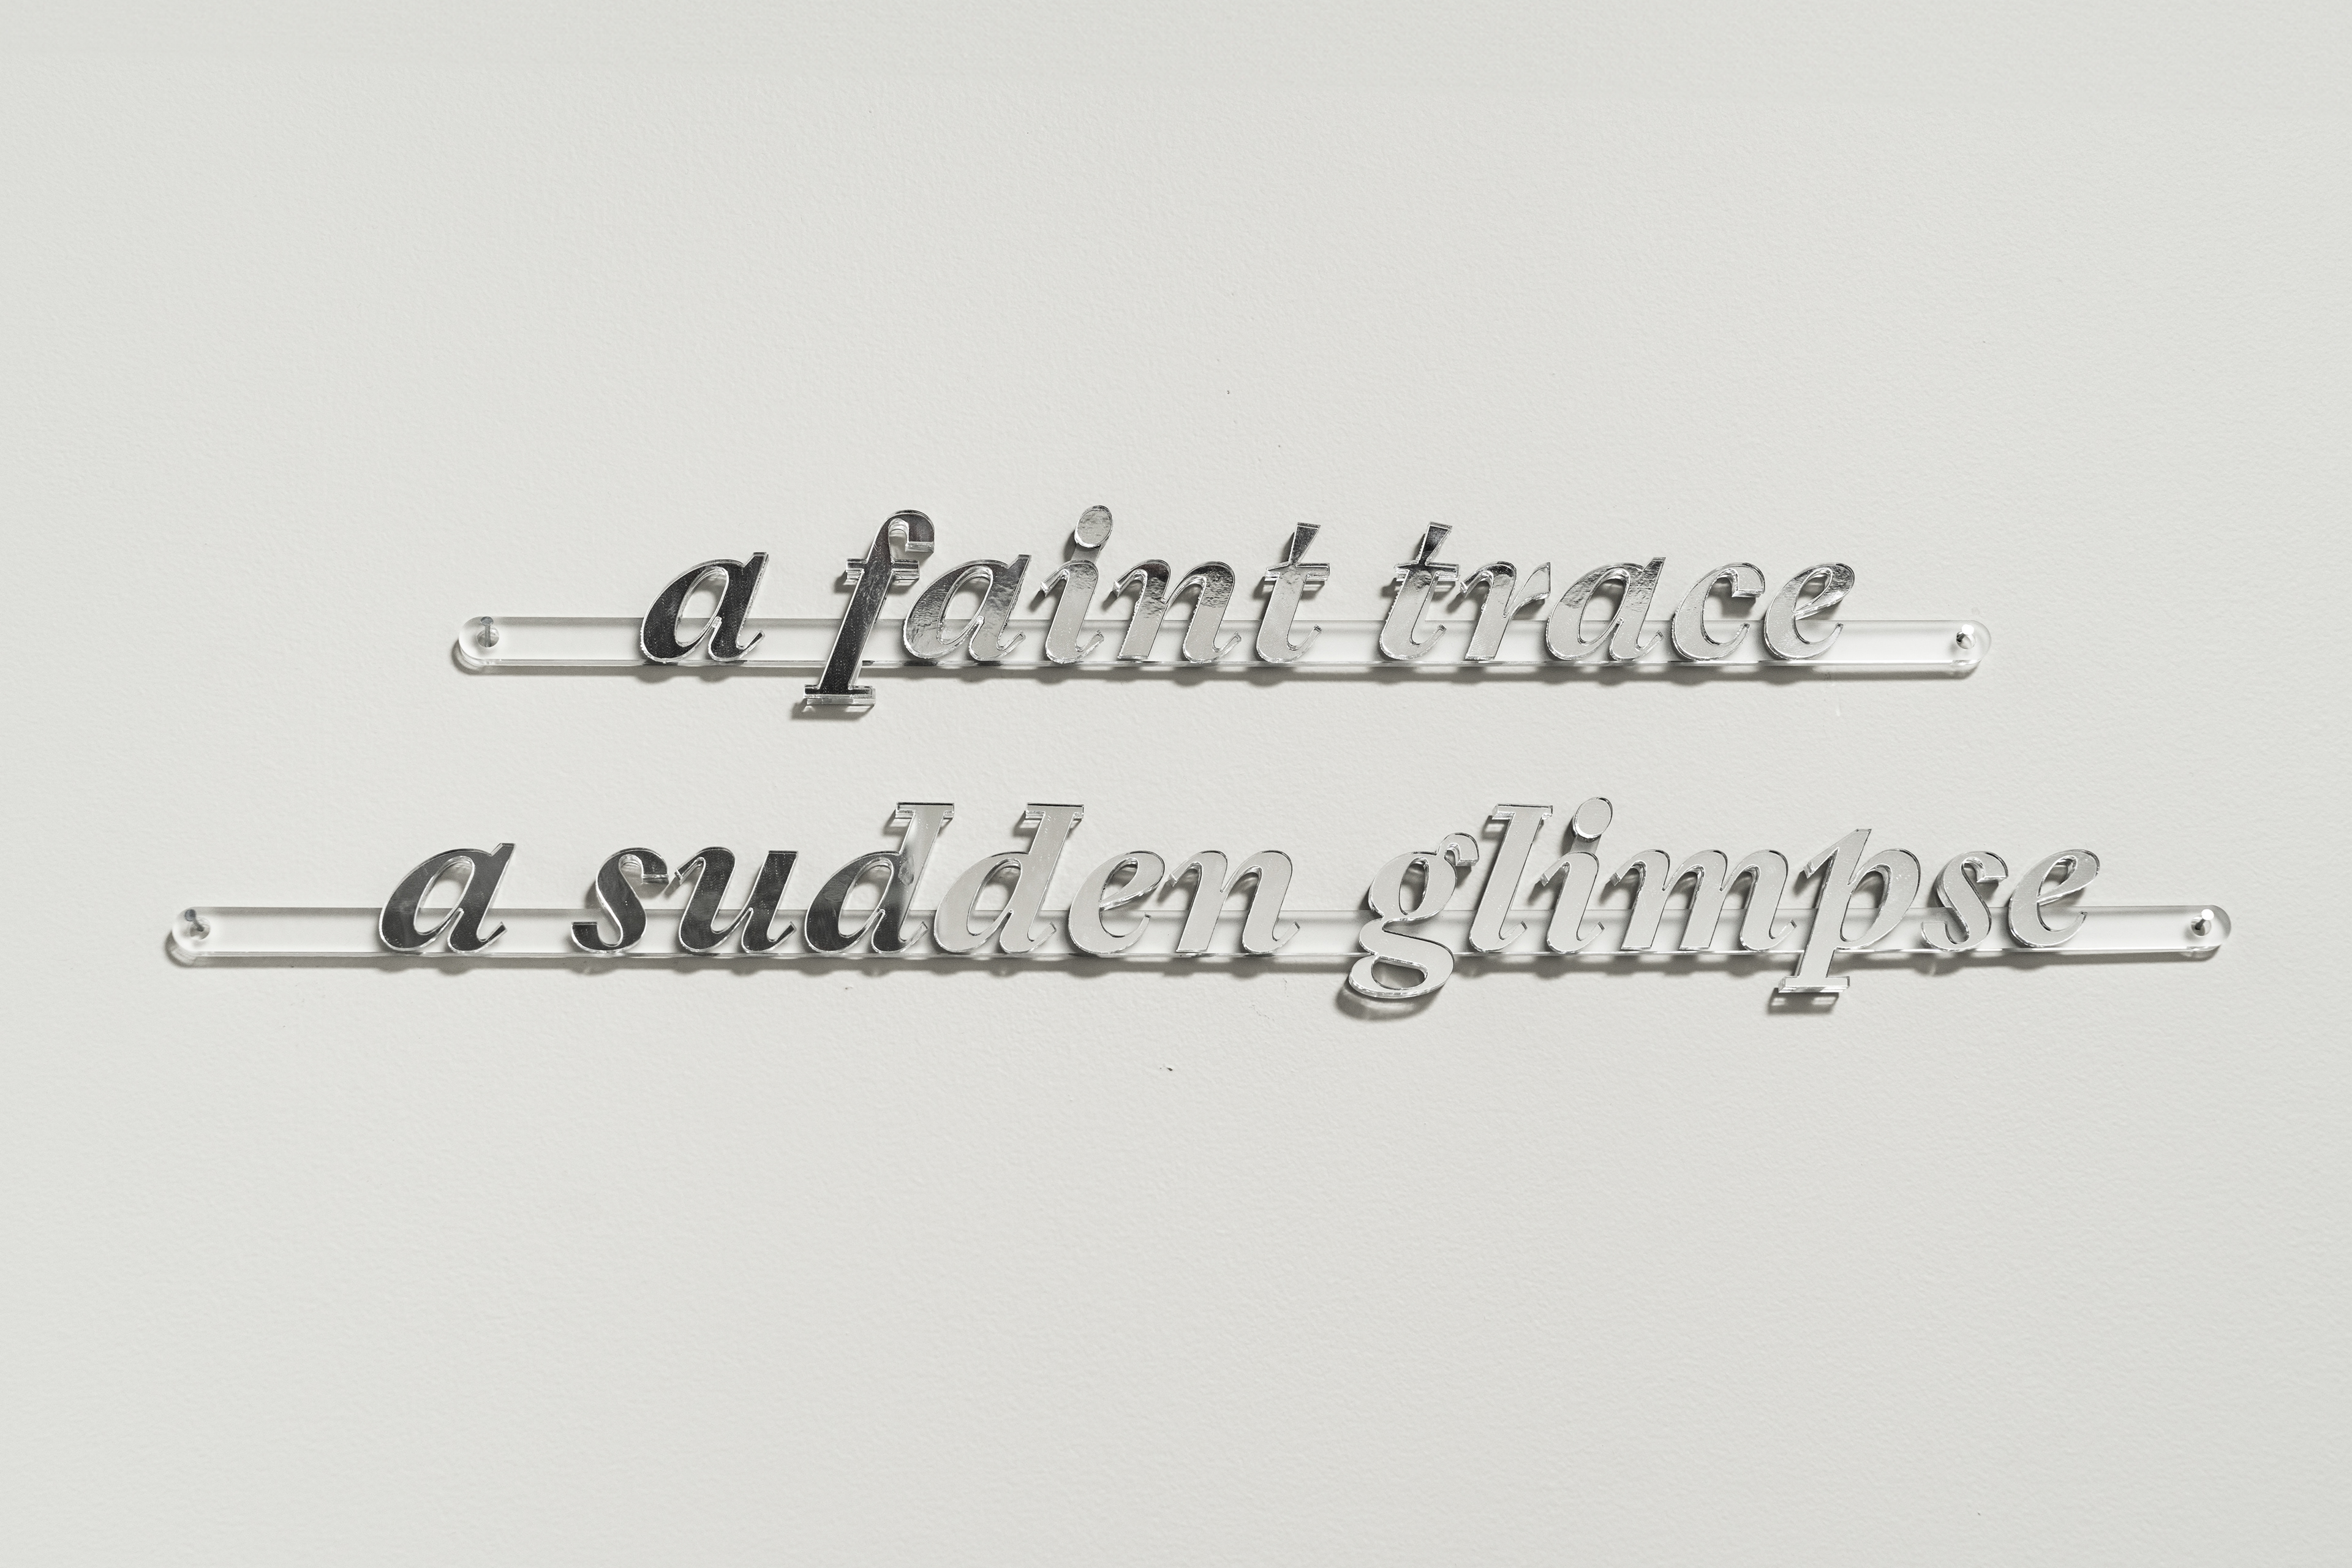 a faint trace
a sudden glimpse